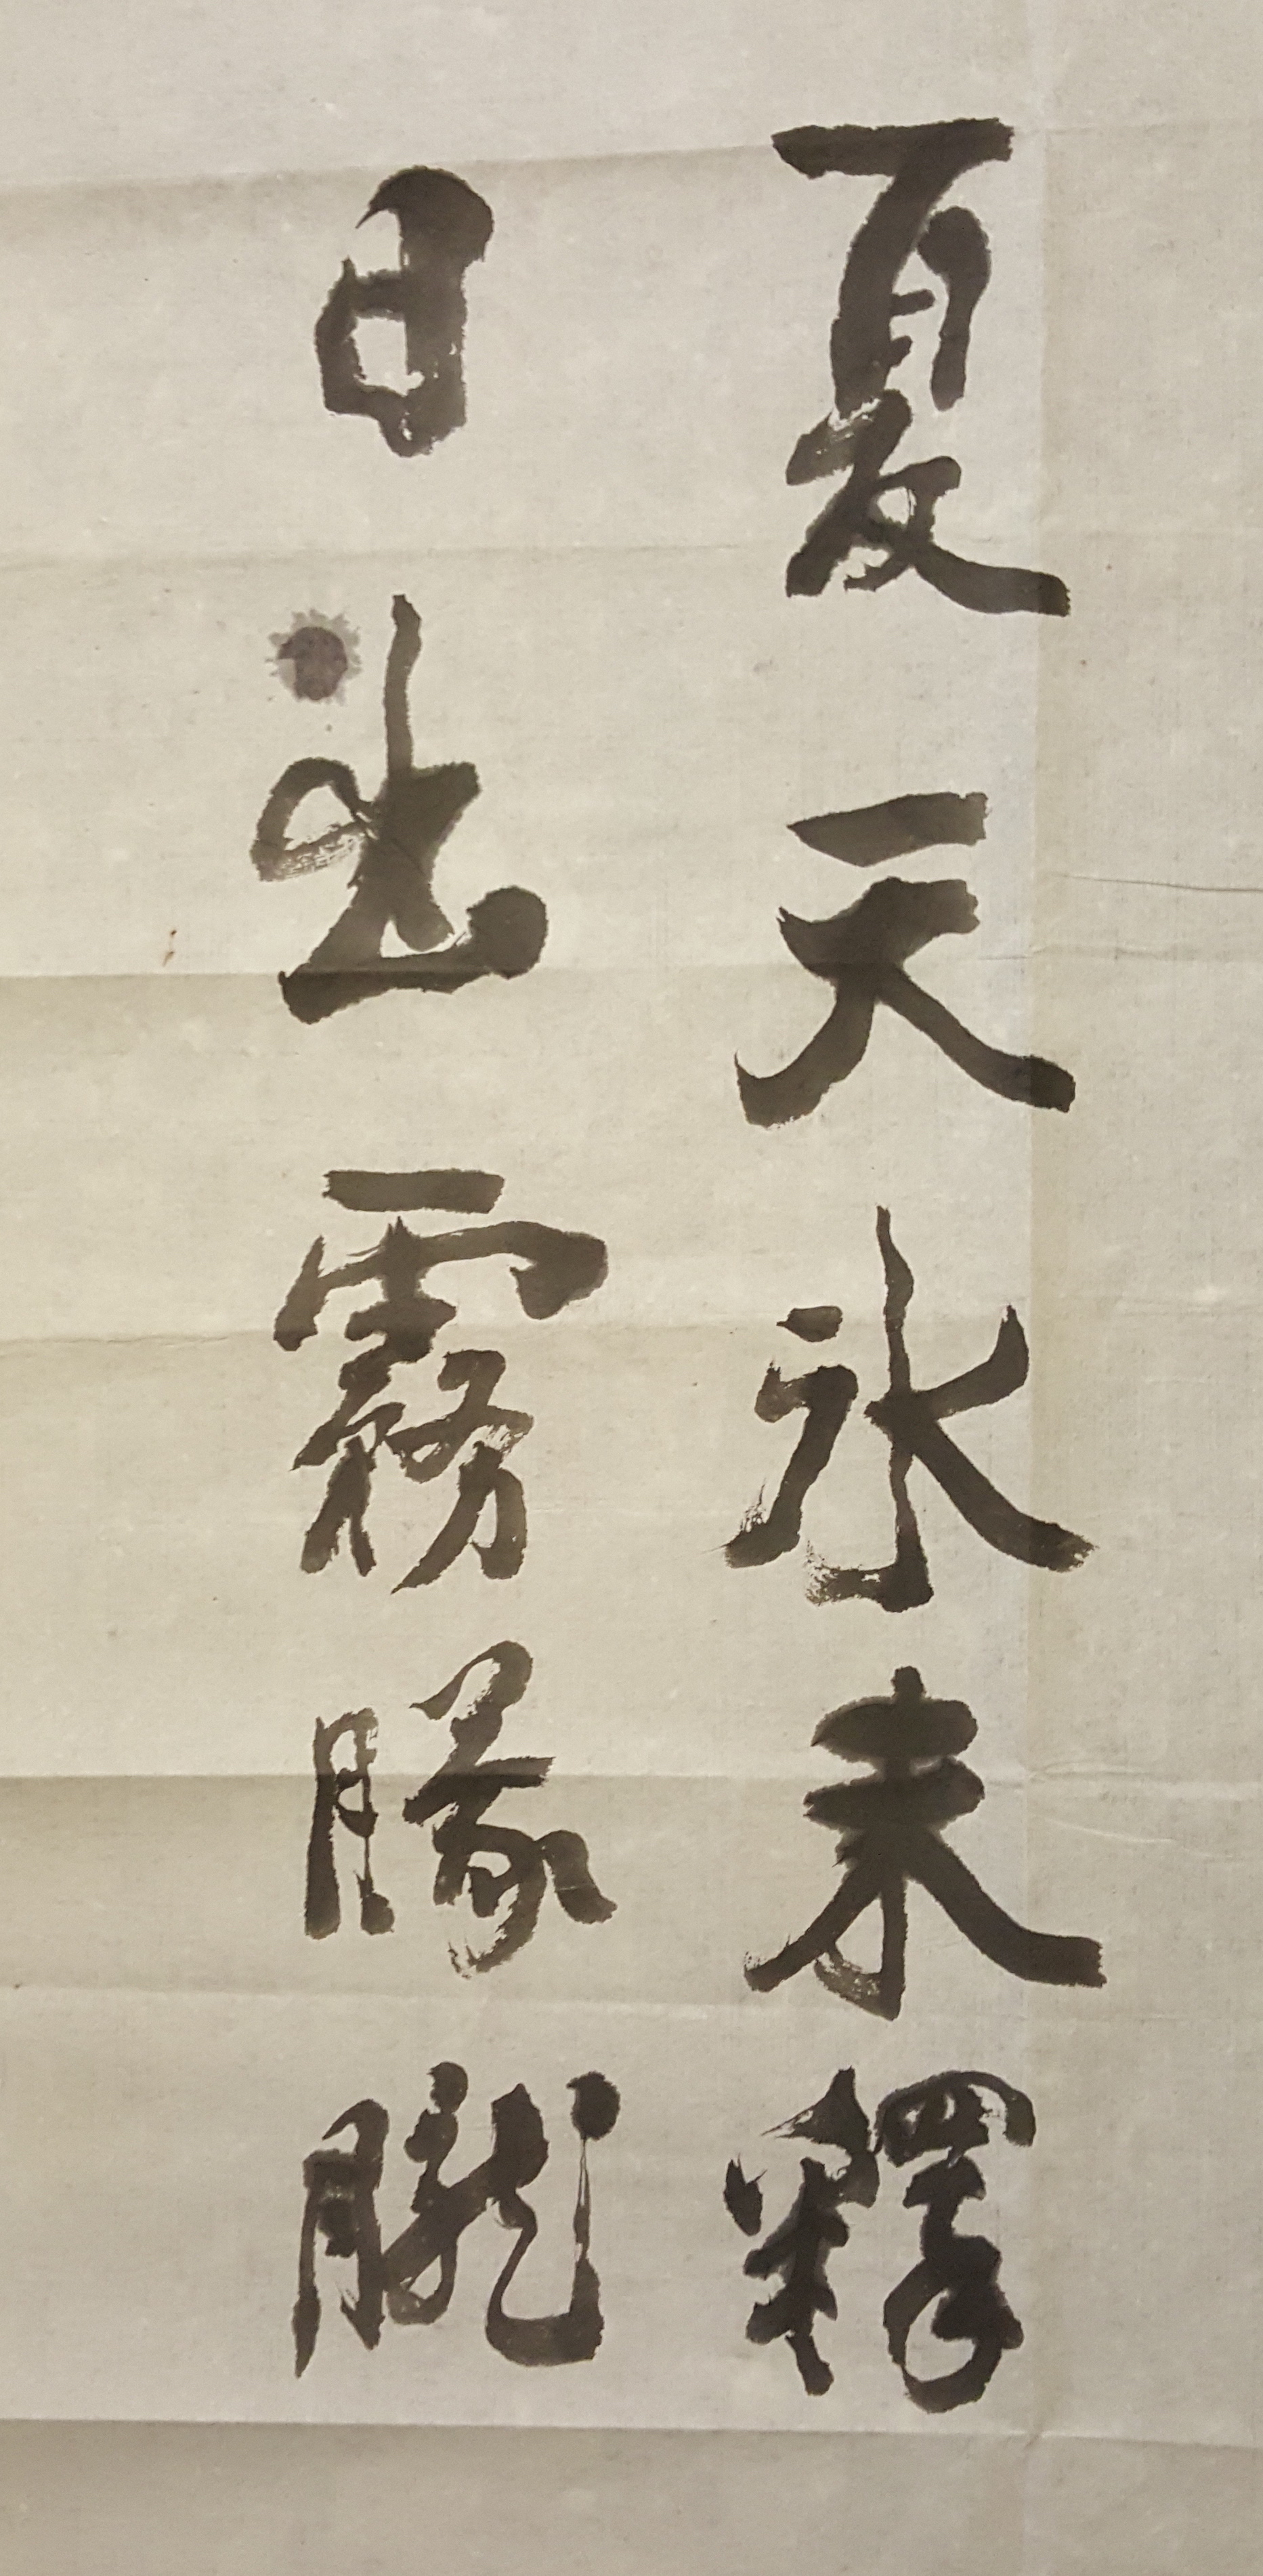 夏天冰未釋
日出霧朦朧